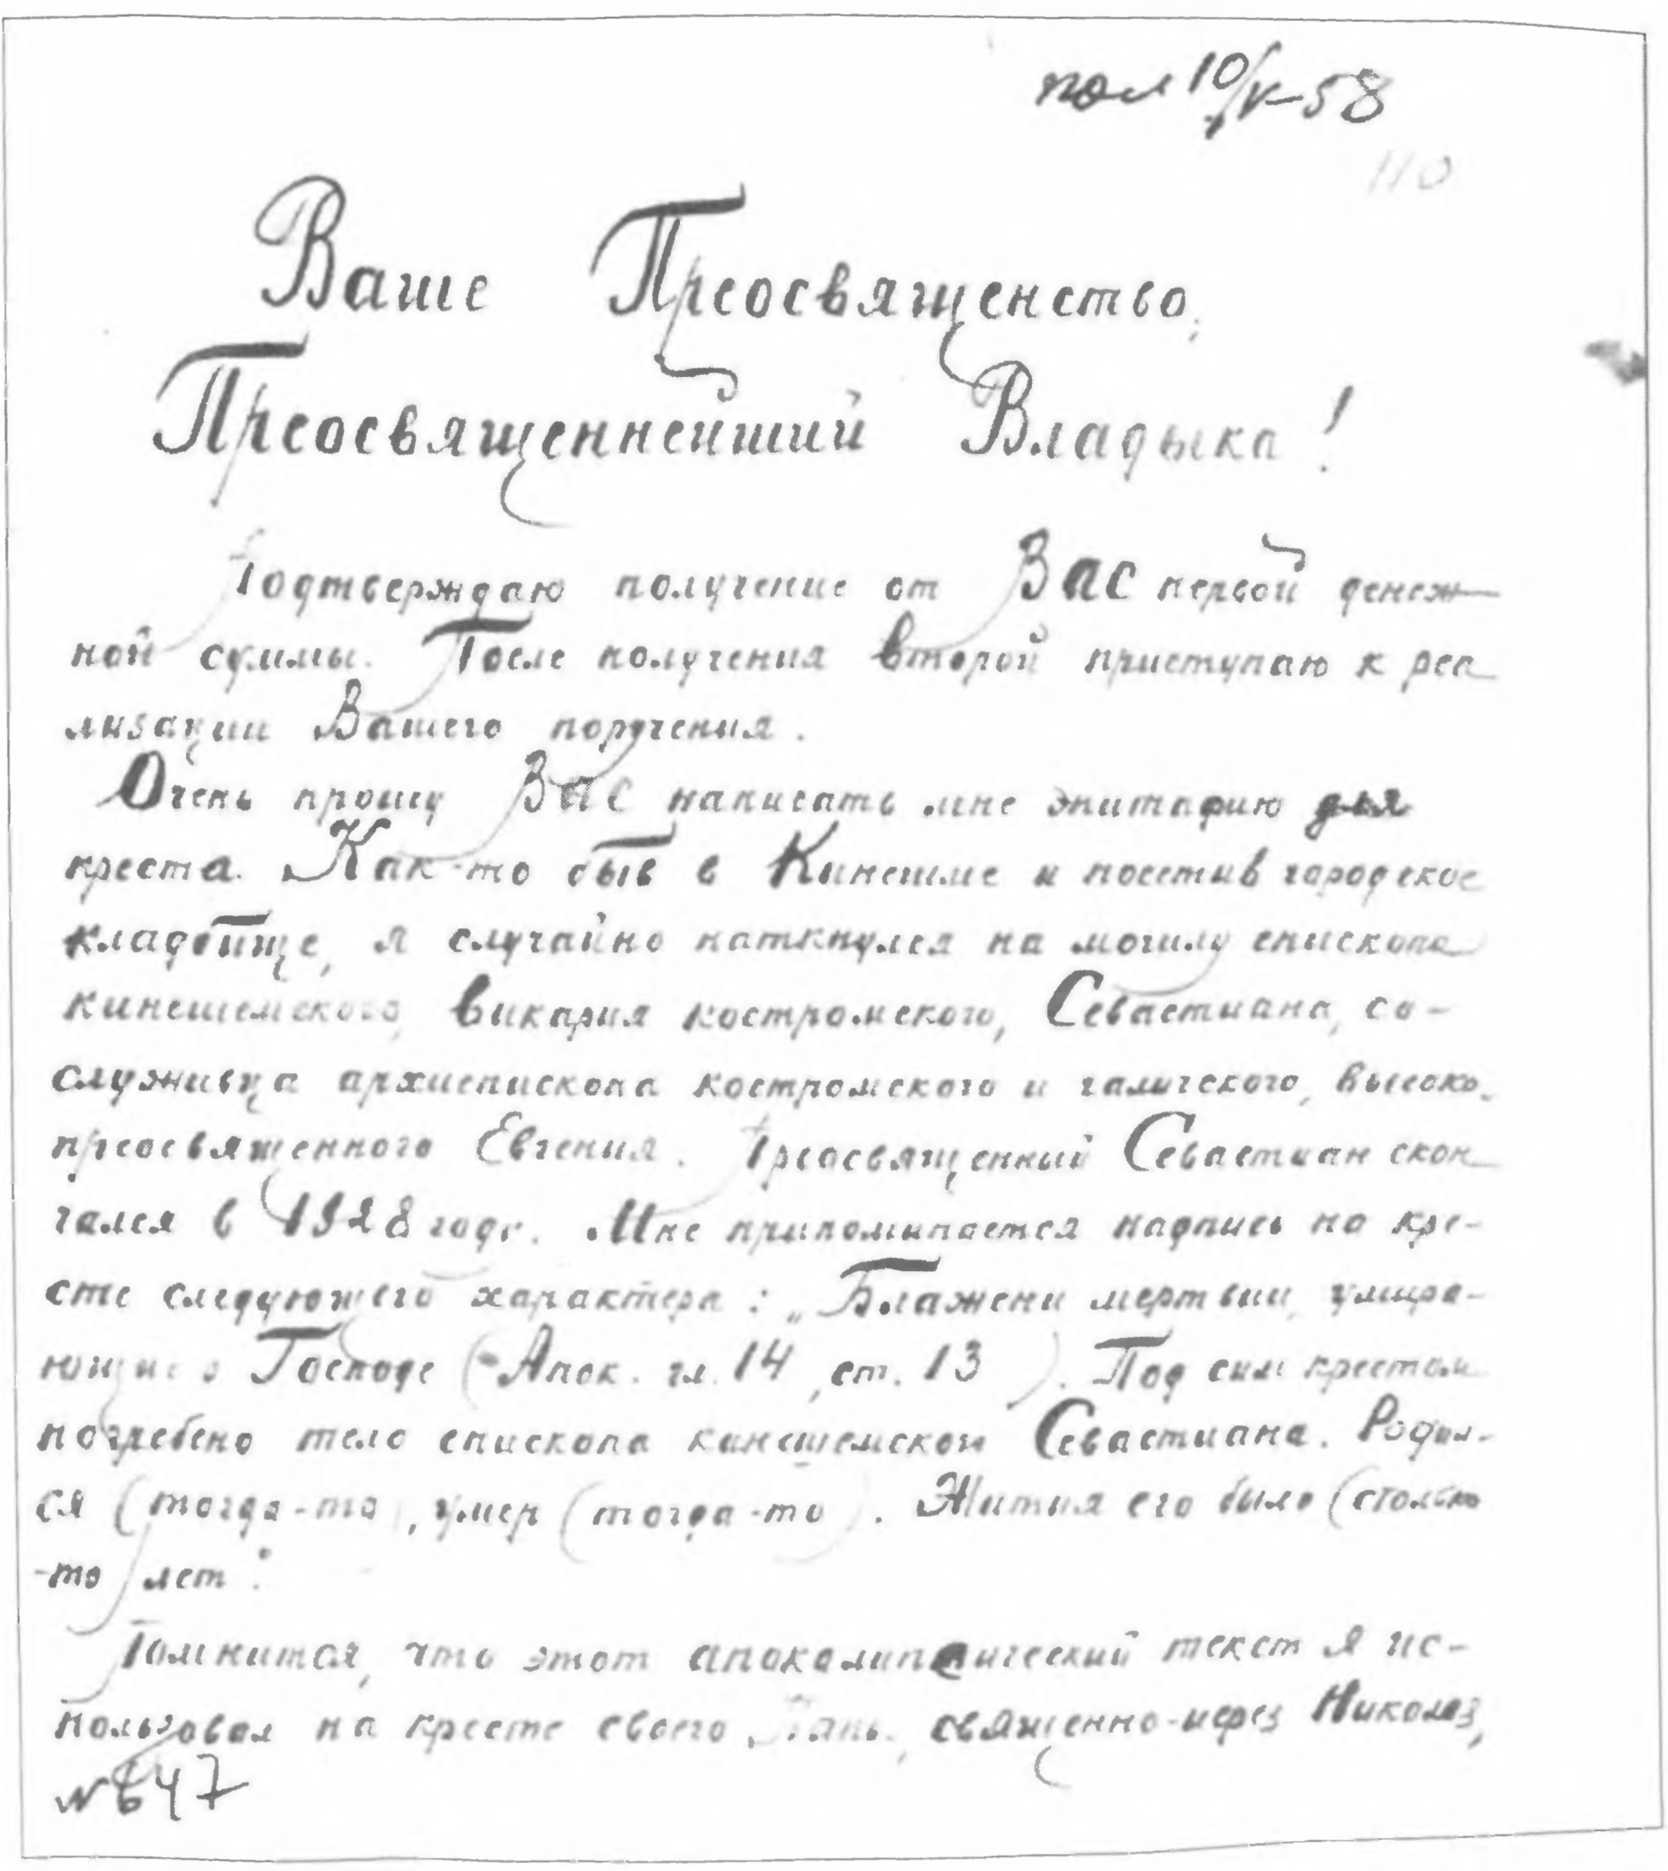 пол 10/V-58
110
Ваше Преосвященство,
Преосвященнейший Владыка!
Подтверждаю получение от ВАС первой денеж-
ной суммы. После получения второй приступаю к реа
лизации Вашего поручения.
Очень прошу ВАС написать мне эпитафию для
креста. Как-то быв в Кинешме и посетив городское
кладбище, я случайно наткнулся на могилу епископа
кинешемского, викария костромского, Севастиана, со-
служивца архиепископа костромского и галичского, высоко-
преосвященного Евгения. Преосвященный Севастиан скон
чался в 1928 году. Мне припоминается надпись на кре-
сте следующего характера: „Блажени мертвии, умира-
ющие о Господе (Апок. гл. 14, ст. 13). Под сим крестом
погребено тело епископа кинешемского Севастиана. Родил-
ся (тогда-то), умер (тогда-то). Жития его было (столько
-то) лет".
Помнится, что этот апокалиптический текст я ис-
пользовал на кресте своего священно-иерея Николая,
№647